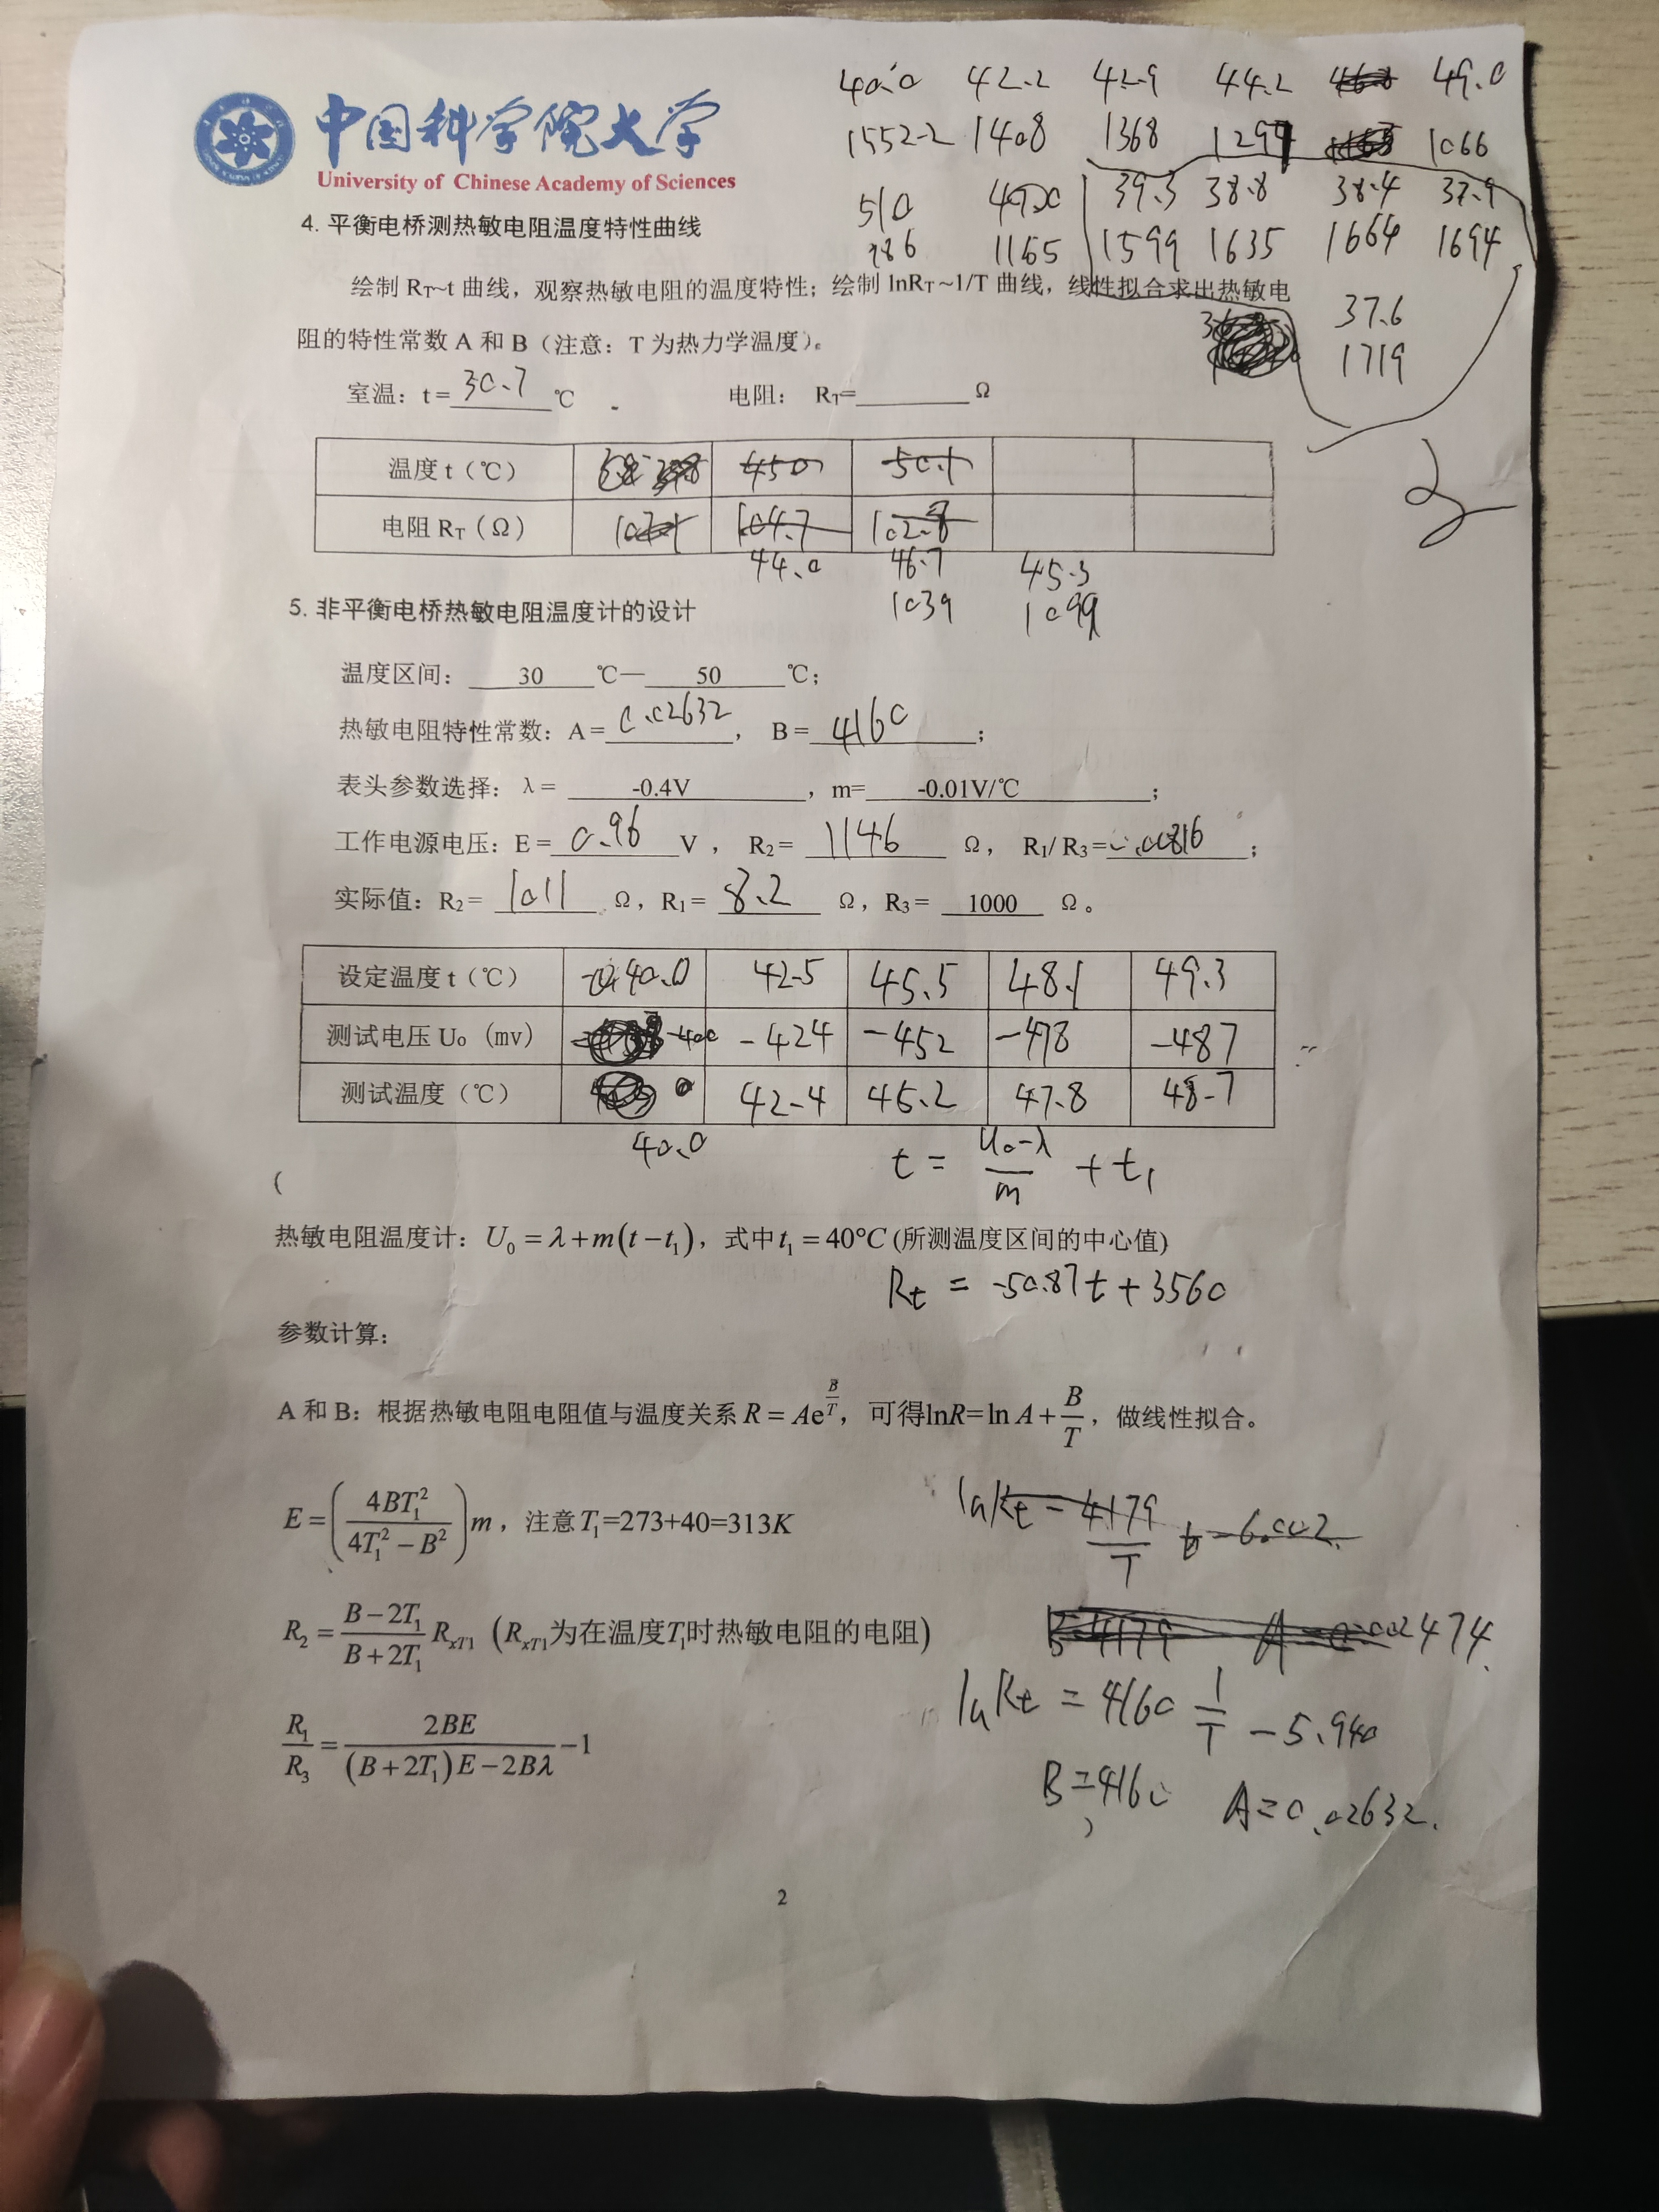 中国科学院大学
University of Chinese Academy of Sciences
40.0 42.2 42.9 44.2 49.0
1552.2 1408 1368 1297 1066
510 47.0 39.3 38.8 38.4 37.9
986 1165 1599 1635 1664 1694
37.6
1719
4. 平衡电桥测热敏电阻温度特性曲线
绘制 RT~t 曲线，观察热敏电阻的温度特性；绘制 lnRT~1/T 曲线，线性拟合求出热敏电
阻的特性常数 A 和 B（注意：T 为热力学温度）。
室温：t= 30.7 ℃ 电阻： RT= Ω
温度 t（℃） 450 50.1
电阻 RT（Ω） 104.7 102.8
44.0 46.7 45.3
1039 1099
5. 非平衡电桥热敏电阻温度计的设计
温度区间： 30 ℃— 50 ℃；
热敏电阻特性常数：A= 0.02632 ， B= 4160 ；
表头参数选择：λ= -0.4V ，m= -0.01V/℃ ；
工作电源电压：E= 0.96 V ， R2= 1146 Ω， R1/ R3= 0.00816 ；
实际值：R2= 1011 Ω，R1= 8.2 Ω，R3= 1000 Ω。
设定温度 t（℃） 40.0 42.5 45.5 48.1 49.3
测试电压 U0（mv） -400 -424 -452 -478 -487
测试温度（℃） 42.4 45.2 47.8 48.7
40.0
t = (U0-λ)/m + t1
(
热敏电阻温度计：U0 = λ + m(t − t1)，式中 t1 = 40°C (所测温度区间的中心值)
Rt = -50.87t + 3560
参数计算：
A 和 B：根据热敏电阻电阻值与温度关系 R = Ae^(B/T)，可得lnR=ln A + B/T，做线性拟合。
lnRt = 4179/T - 6.002
E = (4BT1² / (4T1² − B²)) m，注意 T1=273+40=313K
B=4179 A=0.002474
R2 = (B − 2T1)/(B + 2T1) RxT1（RxT1为在温度T1时热敏电阻的电阻）
lnRt = 4160 1/T - 5.940
R1/R3 = 2BE/((B + 2T1)E − 2Bλ) − 1
B=4160, A=0.02632.
2